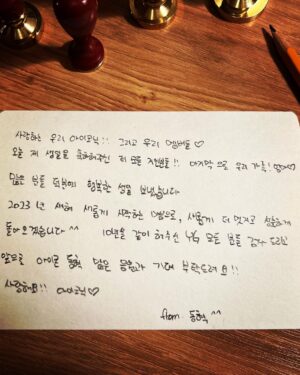 사랑하는 우리 아이코닉!! 그리고 우리 멤버들♡
오늘 제 생일을 축하해주신 제 모든 지인분들!! 마지막으로 우리 가족!
많은 분들 덕분에 행복한 생일 보냈습니다
2023년 새해 새롭게 시작하는 마음으로, 새롭게 더 멋지고
돌아오겠습니다 ^^ 10년을 같이 해주신 YG 모든 분들 감사 드리고
앞으로 아이콘 동혁 많은 응원과 기대 부탁드려요!!
사랑해요!! 아이코닉♡
from. 동혁 ^^